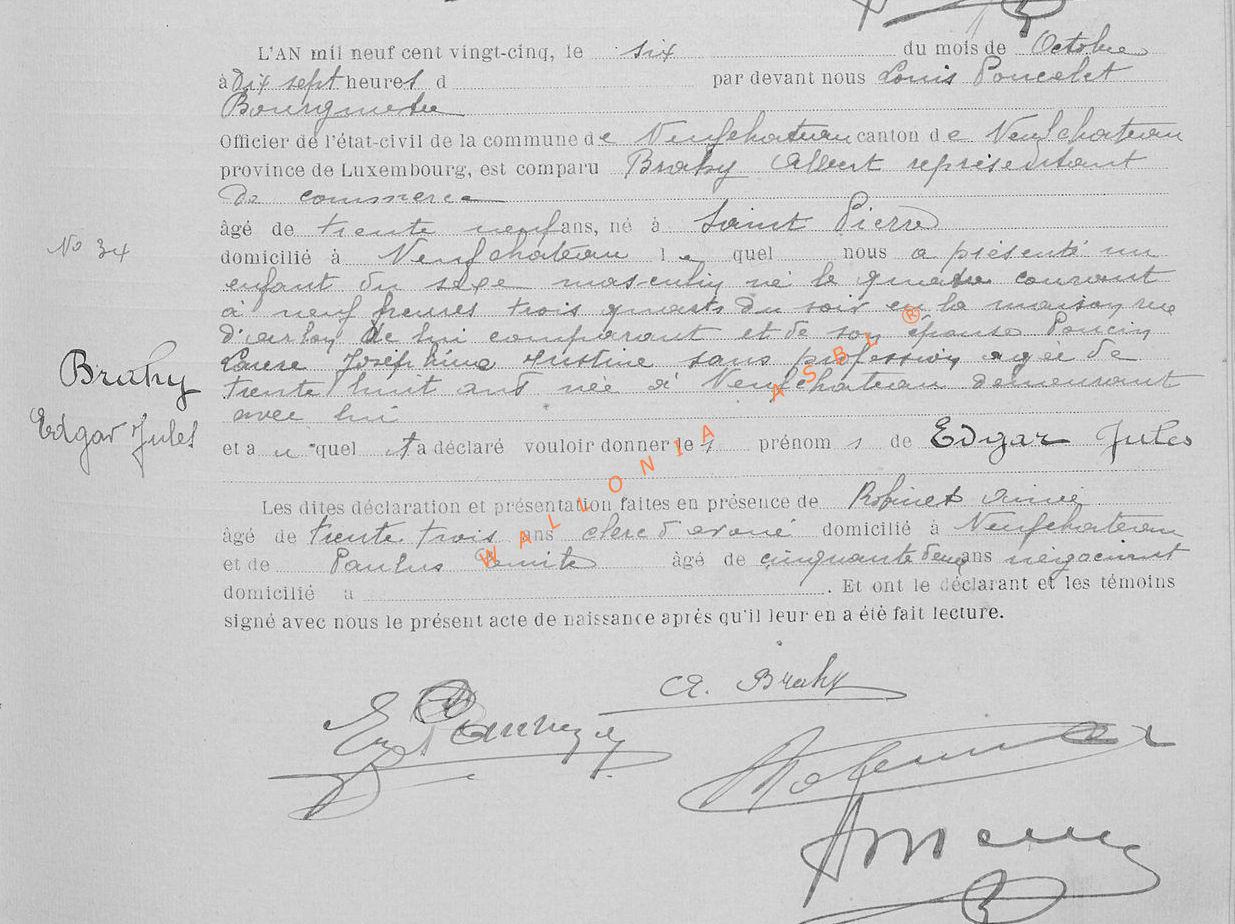 L'AN mil neuf cent vingt-cinq, le six du mois de Octobre
à Dix sept heures d par devant nous Louis Poncelet
Bourgmestre
Officier de l'état-civil de la commune de Neufchateau canton de Neufchateau
province de Luxembourg, est comparu Brahy Albert représentant
de commerce
âgé de trente neuf ans, né à Saint Pierre
No 34
domicilié à Neufchâteau le quel nous a présenté un
enfant du sexe masculin né le quatre courant
à neuf heures trois quarts du soir en la maison rue
d'arlon de lui comparant et de son épouse Poncin
Laure Joséphine Justine sans profession agée de
Brahy
trente huit ans née à Neufchateau demeurant
avec lui
Edgar Jules
et au quel il a déclaré vouloir donner les prénoms de Edgar Jules
Les dites déclaration et présentation faites en présence de Robinet Aimé
âgé de trente trois ans clerc d'avoué domicilié à Neufchateau
et de Paulus âgé de cinquante deux ans négociant
domicilié à . Et ont le déclarant et les témoins
signé avec nous le présent acte de naissance après qu'il leur en a été fait lecture.
WALLONIA ASBL ®
A. Brahy